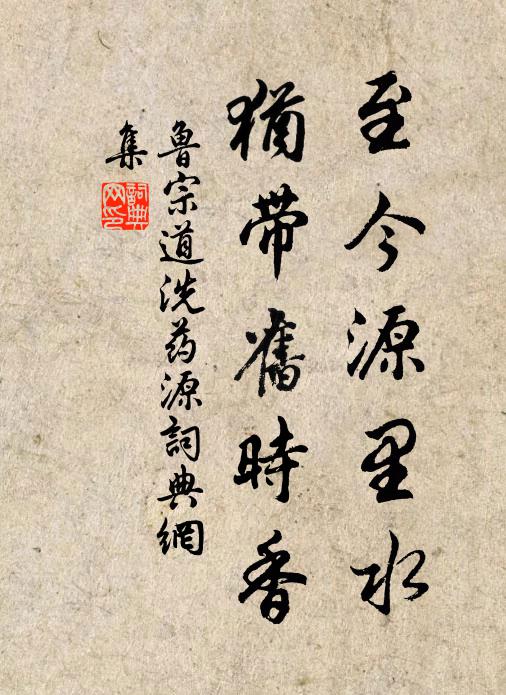 至今源里水
猶带舊時香
魯宗道洗药源詞典網
集
詞典
网印